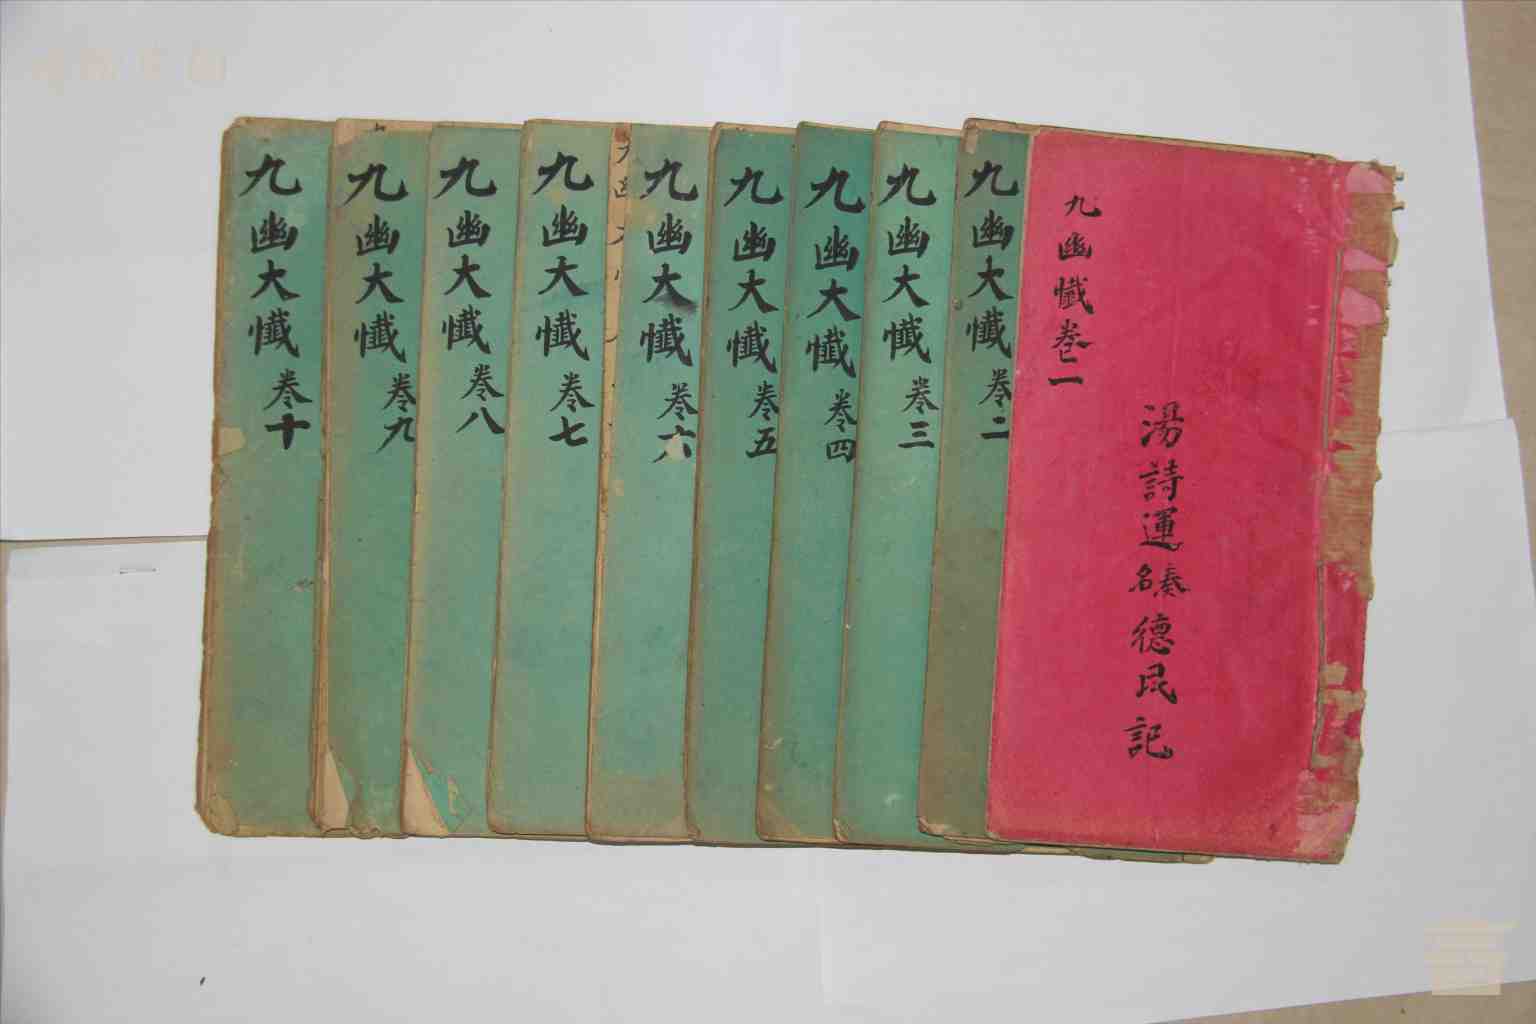 九幽懺卷一
湯詩運奏名德民記
九幽大懺卷二
九幽大懺卷三
九幽大懺卷四
九幽大懺卷五
九幽大懺卷六
九幽大懺卷七
九幽大懺卷八
九幽大懺卷九
九幽大懺卷十